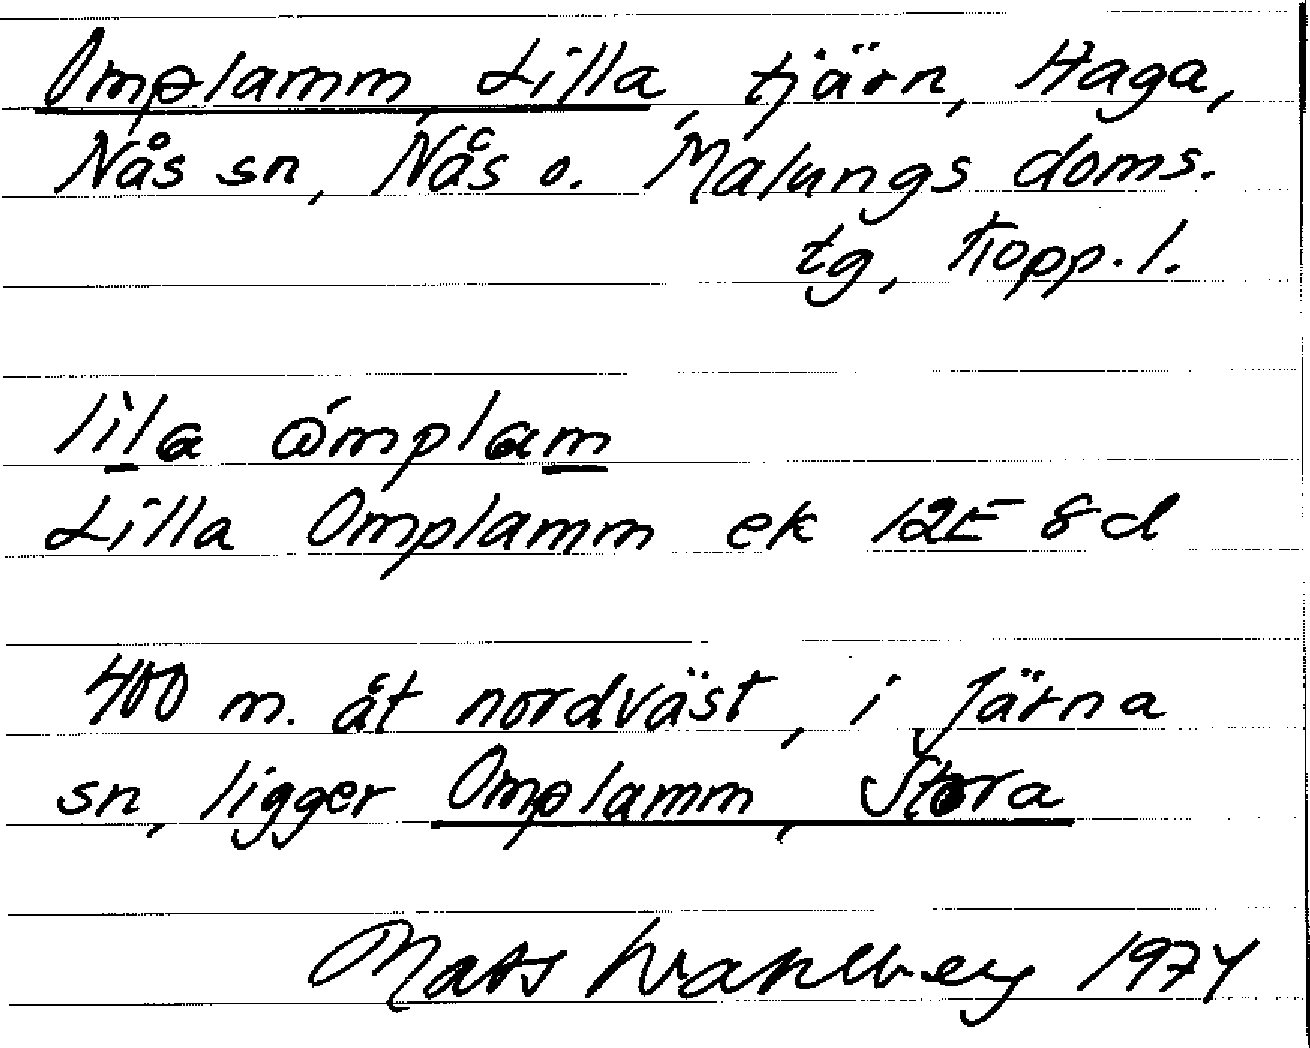 Omplamm, Lilla, tjärn, Haga,
Nås sn, Nås o. Malungs doms.
tg, Kopp. l.
lìla ómplam
Lilla Omplamm ek 12E 8d
400 m. åt nordväst, i Järna
sn, ligger Omplamm, Stora
Mats Wahlberg 1974